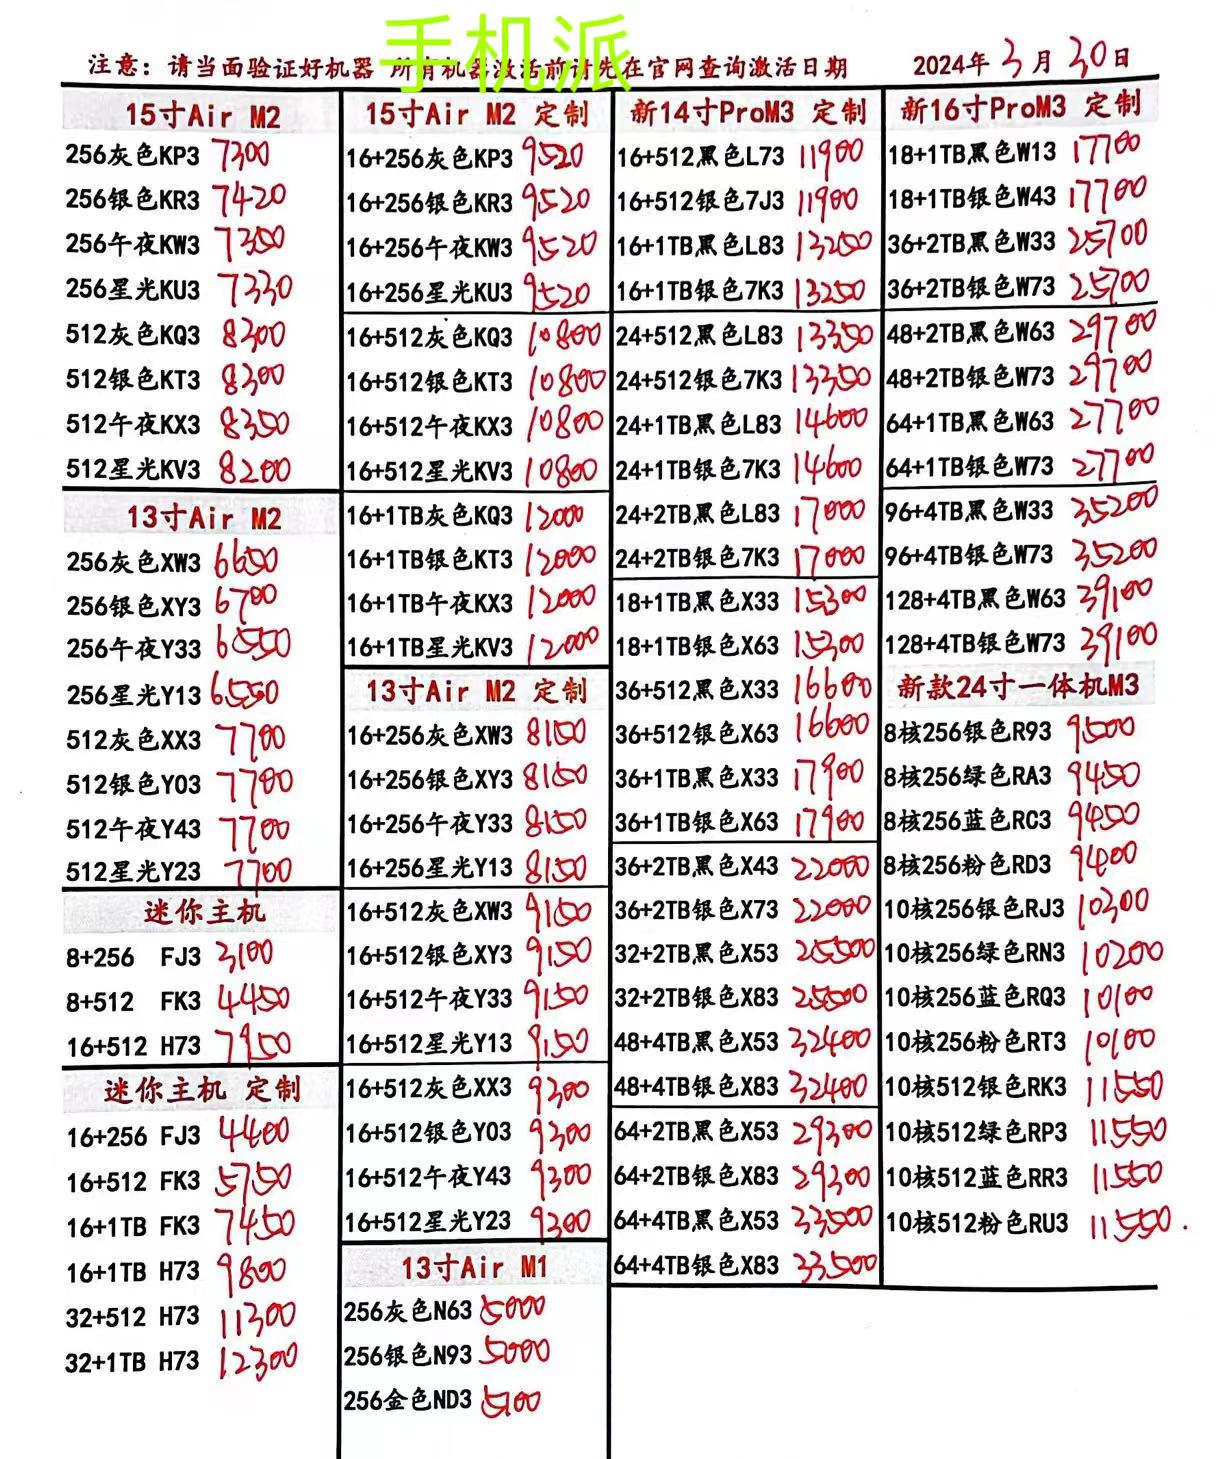 手机派
注意：请当面验证好机器 所有机器激活前请先在官网查询激活日期 2024年3月30日
15寸Air M2
256灰色KP3 7300
256银色KR3 7420
256午夜KW3 7350
256星光KU3 7330
512灰色KQ3 8300
512银色KT3 8300
512午夜KX3 8350
512星光KV3 8200
13寸Air M2
256灰色XW3 6650
256银色XY3 6700
256午夜Y33 6550
256星光Y13 6550
512灰色XX3 7700
512银色Y03 7700
512午夜Y43 7700
512星光Y23 7700
迷你主机
8+256 FJ3 3100
8+512 FK3 4450
16+512 H73 7950
迷你主机 定制
16+256 FJ3 4400
16+512 FK3 5750
16+1TB FK3 7450
16+1TB H73 9800
32+512 H73 11300
32+1TB H73 12300
15寸Air M2 定制
16+256灰色KP3 9520
16+256银色KR3 9520
16+256午夜KW3 9520
16+256星光KU3 9520
16+512灰色KQ3 10800
16+512银色KT3 10800
16+512午夜KX3 10800
16+512星光KV3 10800
16+1TB灰色KQ3 12000
16+1TB银色KT3 12000
16+1TB午夜KX3 12000
16+1TB星光KV3 12000
13寸Air M2 定制
16+256灰色XW3 8150
16+256银色XY3 8150
16+256午夜Y33 8150
16+256星光Y13 8150
16+512灰色XW3 9150
16+512银色XY3 9150
16+512午夜Y33 9150
16+512星光Y13 9150
16+512灰色XX3 9300
16+512银色Y03 9300
16+512午夜Y43 9300
16+512星光Y23 9300
13寸Air M1
256灰色N63 5000
256银色N93 5000
256金色ND3 5100
新14寸ProM3 定制
16+512黑色L73 11900
16+512银色7J3 11900
16+1TB黑色L83 13250
16+1TB银色7K3 13250
24+512黑色L83 13350
24+512银色7K3 13350
24+1TB黑色L83 14600
24+1TB银色7K3 14600
24+2TB黑色L83 17000
24+2TB银色7K3 17000
18+1TB黑色X33 15300
18+1TB银色X63 15300
36+512黑色X33 16600
36+512银色X63 16600
36+1TB黑色X33 17900
36+1TB银色X63 17900
36+2TB黑色X43 22000
36+2TB银色X73 22000
32+2TB黑色X53 25500
32+2TB银色X83 25500
48+4TB黑色X53 32400
48+4TB银色X83 32400
64+2TB黑色X53 29300
64+2TB银色X83 29300
64+4TB黑色X53 33500
64+4TB银色X83 33500
新16寸ProM3 定制
18+1TB黑色W13 17700
18+1TB银色W43 17700
36+2TB黑色W33 25700
36+2TB银色W73 25700
48+2TB黑色W63 29700
48+2TB银色W73 29700
64+1TB黑色W63 27700
64+1TB银色W73 27700
96+4TB黑色W33 35200
96+4TB银色W73 35200
128+4TB黑色W63 39100
128+4TB银色W73 39100
新款24寸一体机M3
8核256银色R93 9500
8核256绿色RA3 9450
8核256蓝色RC3 9450
8核256粉色RD3 9400
10核256银色RJ3 10300
10核256绿色RN3 10200
10核256蓝色RQ3 10100
10核256粉色RT3 10100
10核512银色RK3 11550
10核512绿色RP3 11550
10核512蓝色RR3 11550
10核512粉色RU3 11550.